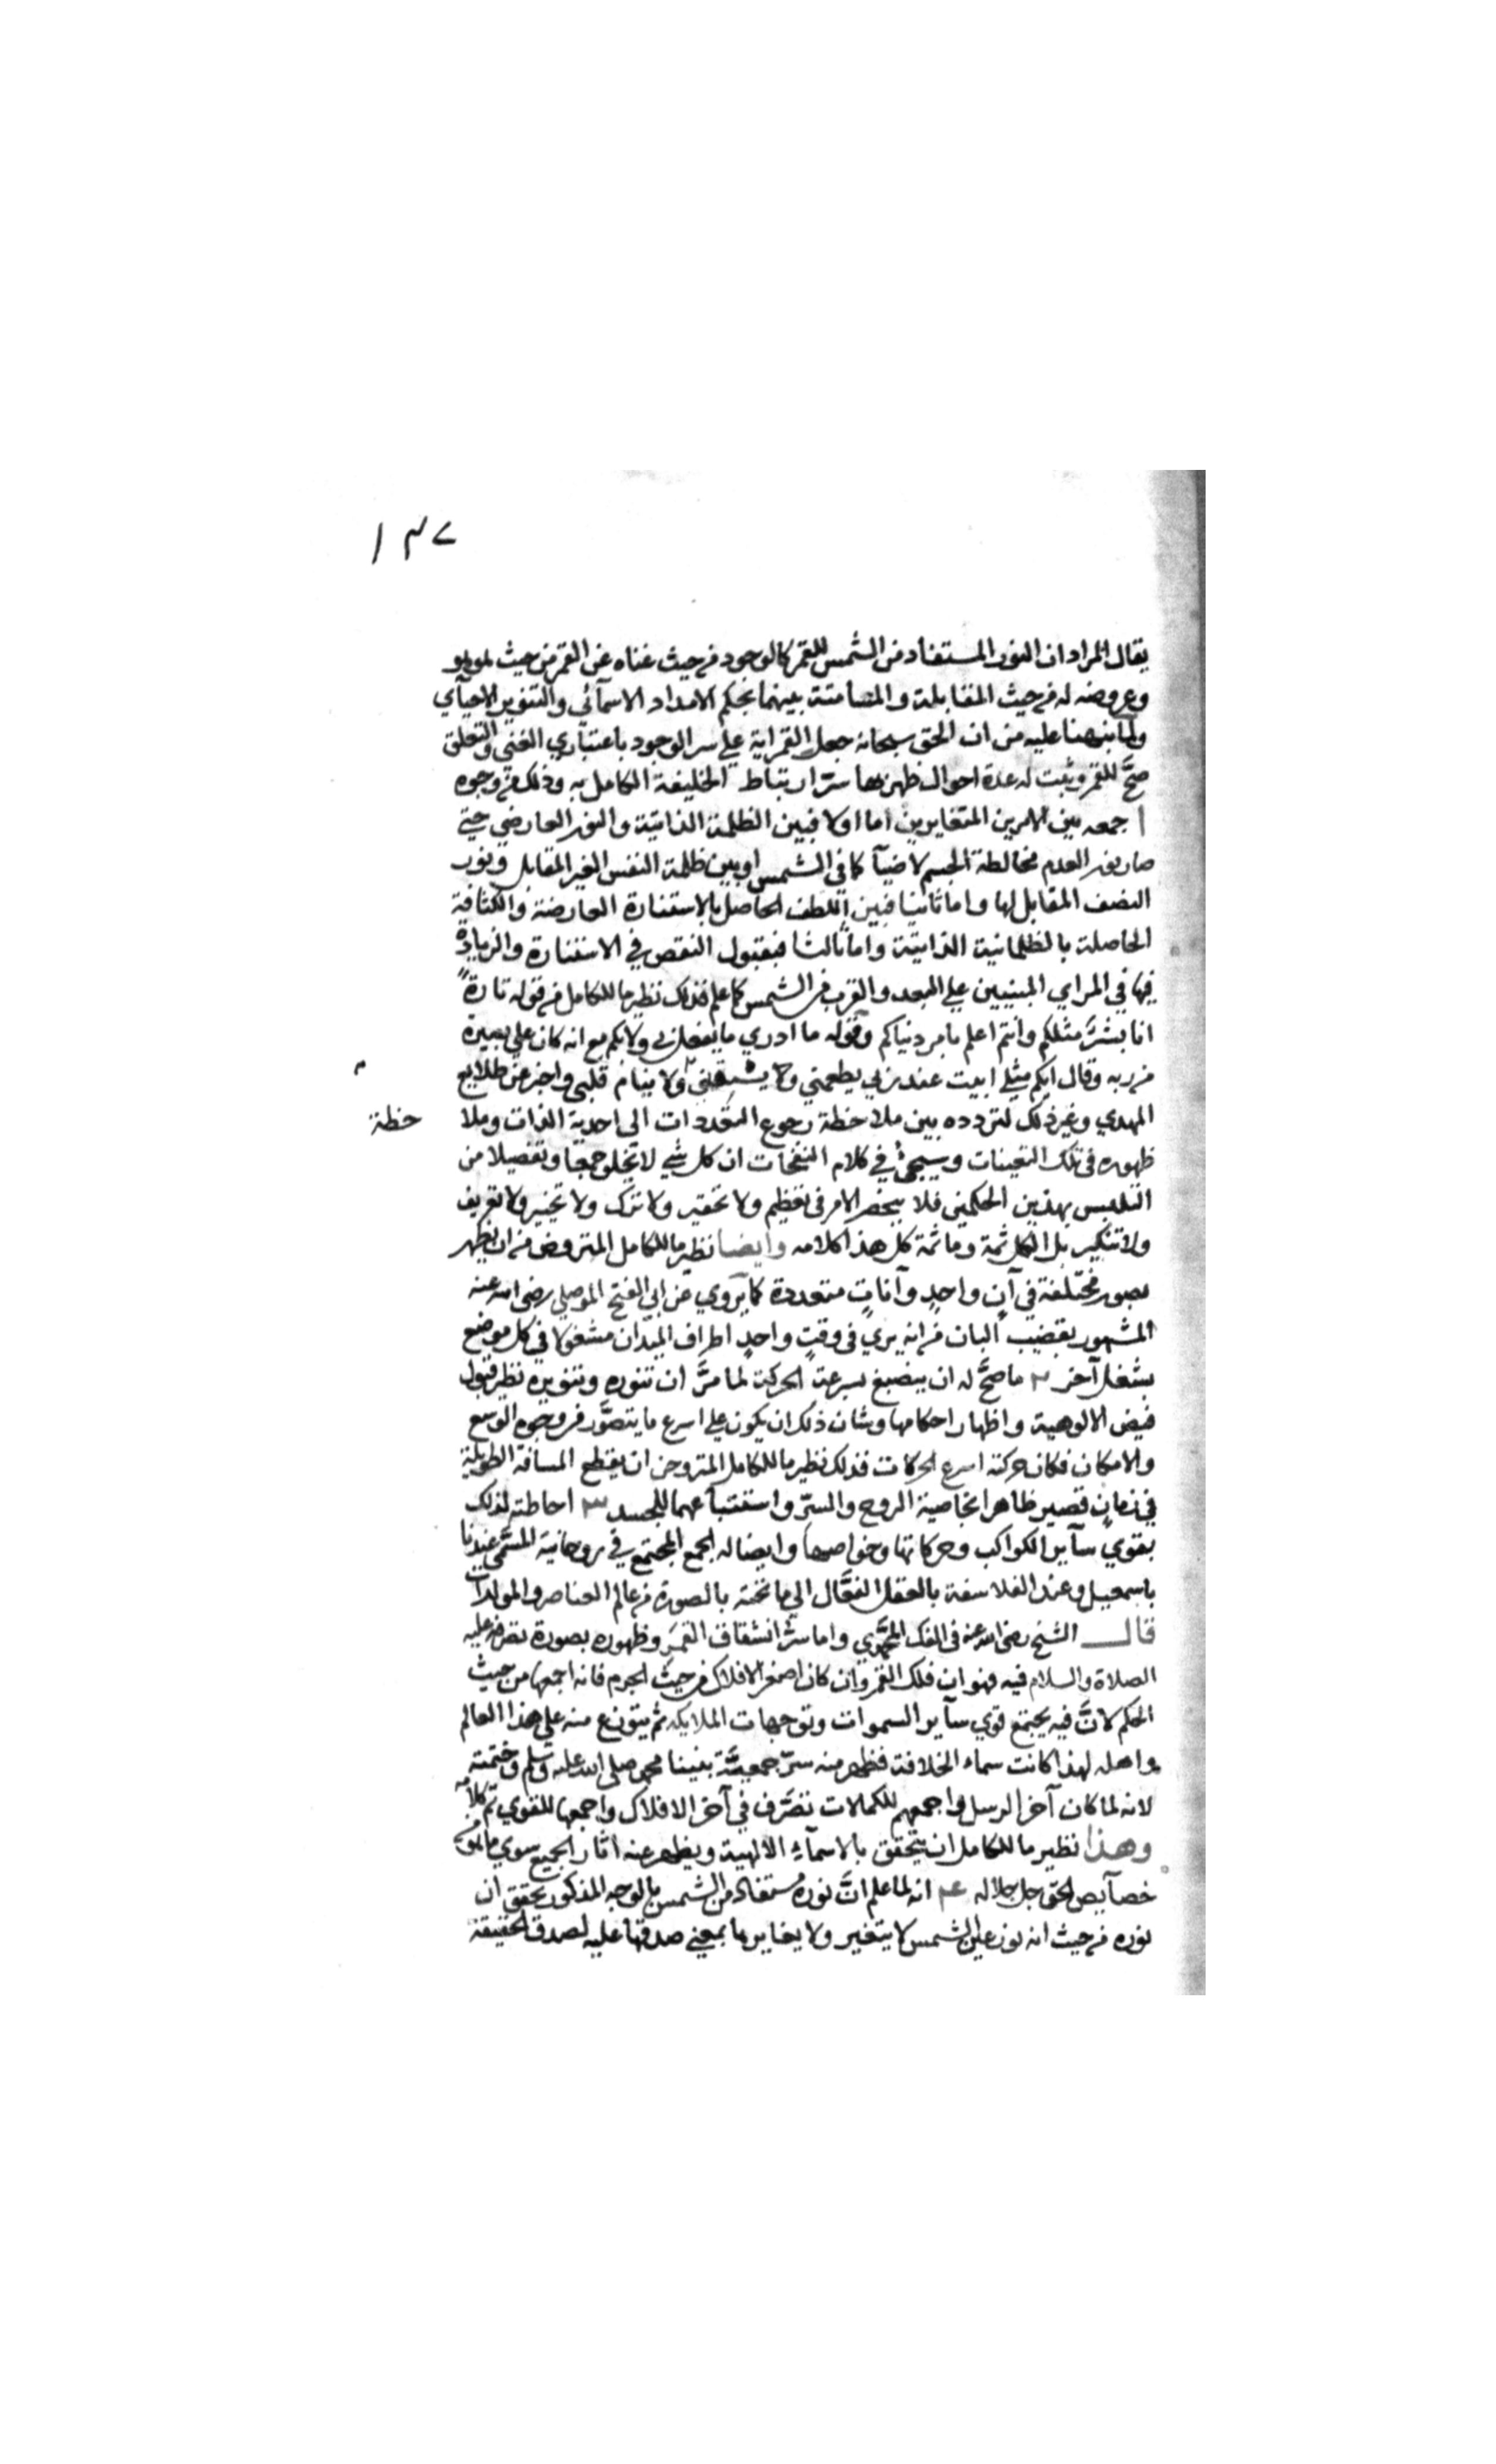 ١٣٧
يقال المراد ان النور المستفاد من الشمس للقمر كالوجود من حيث غناه عن القمر من حيث هو هو
وعروضه له من حيث المقابلة والمسامتة بينهما بحكم الامداد الاسمآئي والتنوير الاحيآي
ولما نبهنا عليه من ان الحق سبحانه جعل القمر اية على سر الوجود باعتباري الغني والتعلق
صحَّ للقمر ويثبت له عدة احوال ظهر بها سرّ ارتباط الخليفة الكامل به وذلك من وجوه
ا جمعه بين الامرين المتغايرين اما اولا فبين الظلمة الذاتية والنور العارضي حتي
صار نور العدم مخالطة الجسم لا ضيآ كما في الشمس او بين ظلمة النصف الغير المقابل ونور
النصف المقابل لها واما ثانيا فبين اللطف الحاصل بالاستنارة العارضة والكثافة
الحاصلة بالظلمانية الذاتية واما ثالثا فبقبول النقص في الاستنارة والزيادة
فيها في المراي المبنيين علي البعد والقرب من الشمس كما علم فذلك نظير ما للكامل من قوله تارةً
انا بشرٌ مثلكم وانتم اعلم بامر دنياكم وقوله ما ادري ما يفعل بي ولا بكم مع انه كان علي بصيرة
من ربه وقال ايكم مثلي ابيت عند ربي يطعمني ويسقيني ولا ينام قلبي واخبر عن طلايع
المهدي وغير ذلك لتردده بين ملاحظة رجوع التعددات الى احدية الذات وملا
حظة
ظهوره في تلك التعينات وسيجئ في كلام النفحات ان كل شي لا يخلو جمعا وتفصيلا من
التلبس بهذين الحكمين فلا ينحصر الامر في تعظيم ولا تحقير ولا ترك ولا تخيير ولا تعريف
ولا تنكير بل الكل ثمة وما ثمة كل هذا كلامه وايضا نظير ما للكامل المتروحن من ان يظهر
بصور مختلفة في آن واحدٍ وآناتٍ متعددة كما يروي عن ابي الفتح الموصلي رضي الله عنه
المشهور بقضيب البان من انه يري في وقتٍ واحدٍ اطراف الميدان مشغولا في كل موضع
بشغل آخر ٢ ما صحَّ له ان ينصبغ بسرعة الحركة لما مرَّ ان تنوره وتنويره نظير قبول
فيض الالوهية واظهار احكامها وشان ذلك ان يكون علي اسرع ما يتصوَّر من وجوه الوسع
والامكان فكان حركته اسرع الحركات فذلك نظير ما للكامل المتروحن ان يقطع المسافة الطويلة
في زمان قصير ظاهرا بخاصية الروح والسرّ واستتباعهما للجسد ٣ احاطته لذلك
بقوي سآير الكواكب وحركاتها وخواصها وايصاله الجمع المجتمع في روحانية المسمَّى عندنا
باسمعيل وعند الفلاسفة بالعقل الفعَّال الي ما تحته بالصورة من عالم العناصر والمولدات
قال الشيخ رضي الله عنه في الفك المحمَّدي واما سرّ انشقاق القمر وظهوره بصورة تصرفه عليه
الصلاة والسلام فيه فهو ان فلك القمر وان كان اصغر الافلاك من حيث الجرم فانه اجمعها من حيث
الحكم لانَّ فيه يجتمع قوي سآير السموات وتوجهات الملايكه ثم يتوزع منه علي هذا العالم
واهله لهذا كانت سماء الخلافة فظهر منه سرّ جمعيَّة نبينا محمد صلى الله عليه وسلم وختمته
لانه لما كان آخر الرسل واجمعهم للكمالات تصرَّف في آخر الافلاك واجمعها للقوي تم كلامه
وهذا نظير ما للكامل ان يتحقق بالاسمآء الالهية ويظهر عنه اثار الجميع سوي ما هو من
خصآيص الحق جل جلاله ٤ انه لما علم انَّ نوره مستفاد من الشمس بالوجه المذكور تحقق ان
نوره من حيث انه نور عين الشمس لا يتغير ولا يغايرها بمعني صدقها عليه لصدق الحقيقة